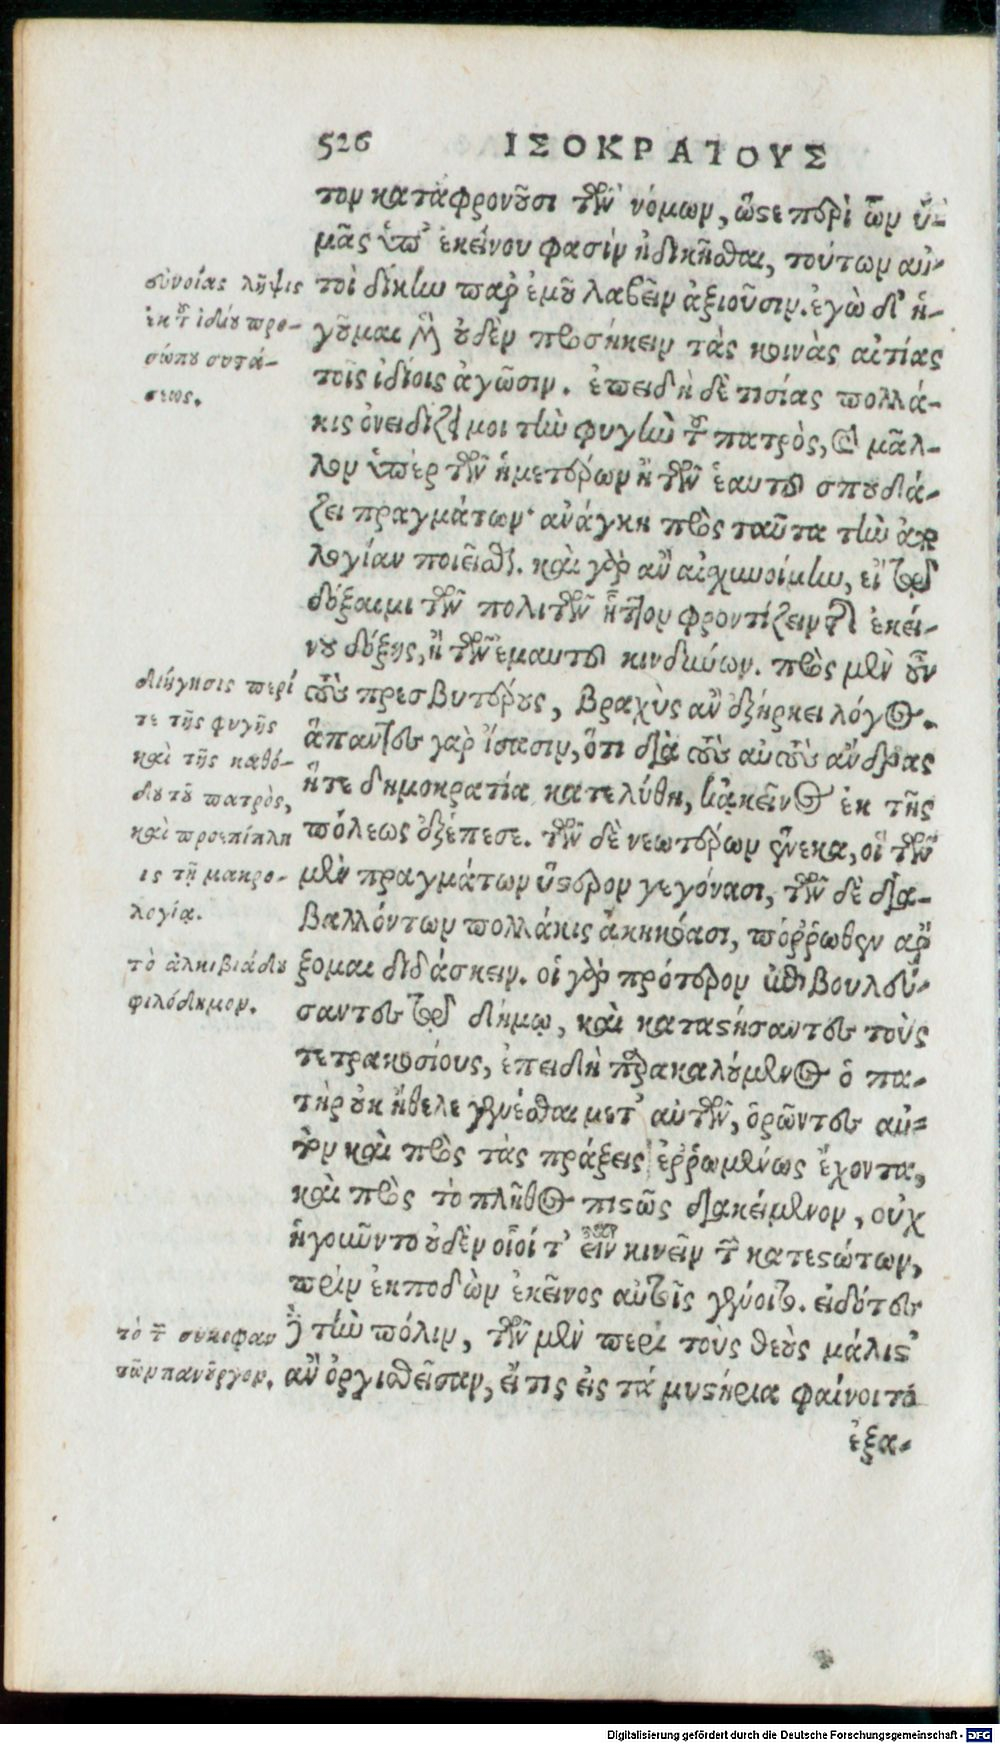 526 ΙΣΟΚΡΑΤΟΥΣ
τον καταφρονοῦσι τῶν νόμων, ὥστε περὶ ὧν ὑ-
μᾶς ὑπ' ἐκείνου φασὶν ἠδικῆσθαι, τούτων αὐ-
τοὶ δίκην παρ' ἐμοῦ λαβεῖν ἀξιοῦσιν. ἐγὼ δ' ἡ-
γοῦμαι μὴ οὐδὲν προσήκειν τὰς κοινὰς αἰτίας
τοῖς ἰδίοις ἀγῶσιν. ἐπειδὴ δὲ τισίας πολλά-
κις ὀνειδίζει μοι τὴν φυγὴν τοῦ πατρὸς, καὶ μᾶλ-
λον ὑπὲρ τῶν ἡμετέρων ἢ τῶν ἑαυτοῦ σπουδά-
ζει πραγμάτων· ἀνάγκη πρὸς ταῦτα τὴν ἀπο
λογίαν ποιεῖσθαι. καὶ γὰρ ἂν αἰσχυνοίμην, εἴ τῳ
δόξαιμι τῶν πολιτῶν ἧττον φροντίζειν τῆς ἐκεί-
νου δόξης, ἢ τῶν ἐμαυτοῦ κινδύνων. πρὸς μὲν οὖν
τοὺς πρεσβυτέρους, βραχὺς ἂν ἐξήρκει λόγος.
ἅπαντες γὰρ ἴσασιν, ὅτι διὰ τοὺς αὐτοὺς ἄνδρας
ἥτε δημοκρατία κατελύθη, κἀκεῖνος ἐκ τῆς
πόλεως ἐξέπεσε. τῶν δὲ νεωτέρων ἕνεκα, οἳ τῶν
μὲν πραγμάτων ὕστερον γεγόνασι, τῶν δὲ δια-
βαλλόντων πολλάκις ἀκηκόασι, πόῤῥωθεν ἄρ
ξομαι διδάσκειν. οἱ γὰρ πρότερον ἐπιβουλεύ-
σαντες τῷ δήμῳ, καὶ καταστήσαντες τοὺς
τετρακοσίους, ἐπειδὴ παρακαλούμενος ὁ πα-
τὴρ οὐκ ἤθελε γενέσθαι μετ' αὐτῶν, ὁρῶντες αὐ-
τὸν καὶ πρὸς τὰς πράξεις ἐῤῥωμένως ἔχοντα,
καὶ πρὸς τὸ πλῆθος πιστῶς διακείμενον, οὐχ
ἡγοῦντο οὐδὲν οἷοί τ' εἶναι κινεῖν τῶν κατεστώτων,
πρὶν ἐκποδὼν ἐκεῖνος αὐτοῖς γένοιτο. εἰδότες
δὲ τὴν πόλιν, τῶν μὲν περὶ τοὺς θεοὺς μάλιστ'
ἂν ὀργισθεῖσαν, εἴ τις εἰς τά μυστήρια φαίνοιτο
ἐξα-
συνοίας λῆψις
ἐκ τοῦ ἰδίου προ-
σώπου συστά-
σεως.
διήγησις περί
τε τῆς φυγῆς
καὶ τῆς καθό-
δου τοῦ πατρὸς,
καὶ προσεπίπλη
ις τῇ μακρο-
λογίᾳ.
τὸ ἀλκιβιάδου
φιλόδημον.
τὸ τῶν συκοφαν
τῶν πανοῦργον.
Digitalisierung gefördert durch die Deutsche Forschungsgemeinschaft - DFG